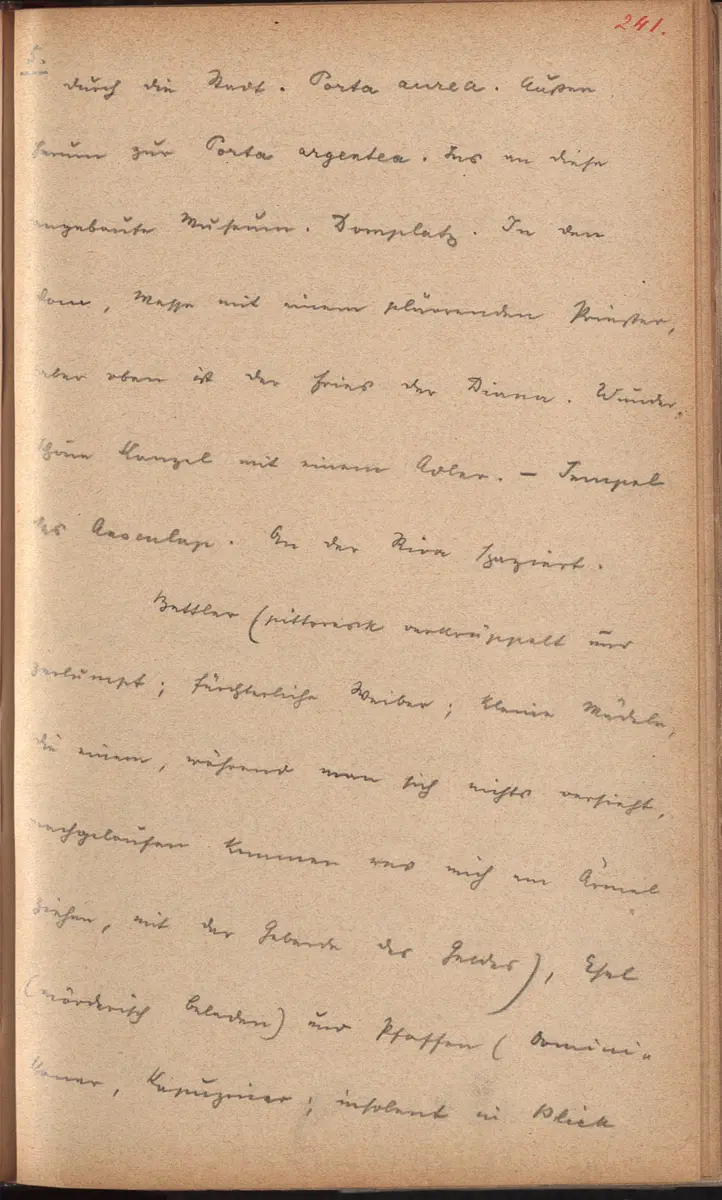 241.
5.
durch die Stadt. Porta aurea. Außen
herum zur Porta argentea. Ins an diese
angebaute Museum. Domplatz. In den
Dom, Messe mit einem plärrenden Priester,
aber oben ist der Fries der Diana. Wunder-
schöne Kanzel mit einem Adler. – Tempel
des Aesculap. An der Riva spaziert.
Bettler (pittoresk verkrüppelt und
zerlumpt; fürchterliche Weiber; kleine Mädeln,
die einem, während man sich nichts versieht,
nachgelaufen kommen und mich am Ärmel
ziehen, mit der Geberde des Geldes), Esel
(mörderisch beladen) und Pfaffen (Domini-
kaner, Kapuziner; insolent in Blick